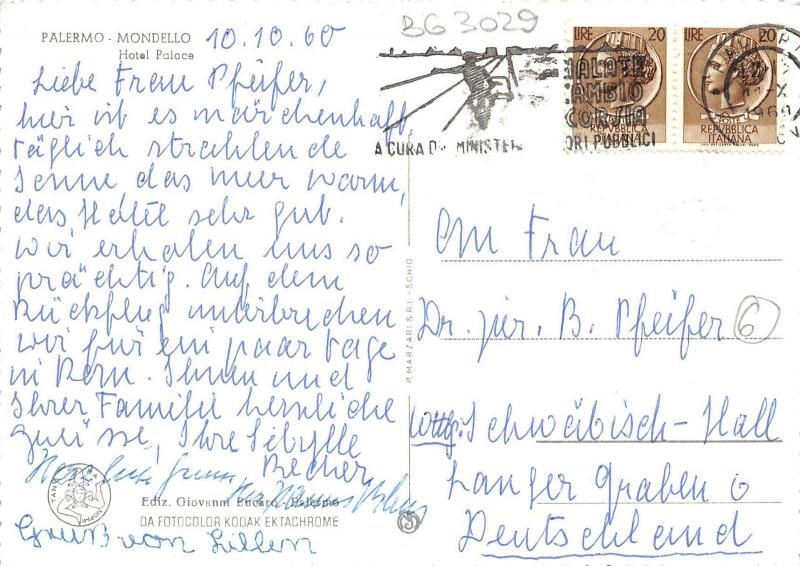 BG 3029
PALERMO - MONDELLO
Hotel Palace
10.10.60
Liebe Frau Pfeifer,
hier ist es märchenhaft,
täglich strahlende
Sonne das meer warm,
das Hotel sehr gut.
Wir erholen uns so
prächtig. Auf dem
Rückflug unterbrechen
wir für ein paar tage
in Rom. Ihnen und
Ihrer Familie herzliche
Grüsse, Ihre Sibylle
Becher
Ediz. Giovanni - Palermo
DA FOTOCOLOR KODAK EKTACHROME
Gruß von
P. MARZARI S.R.L. - SCHIO
LIRE 20
REPVBBLICA
ITALIANA
LIRE 20
REPVBBLICA
ITALIANA
A CURA MINISTE
ORI PUBBLICI
An Frau
Dr. jur. B. Pfeifer 6
Schwäbisch-Hall
Langer Graben 6
Deutschland